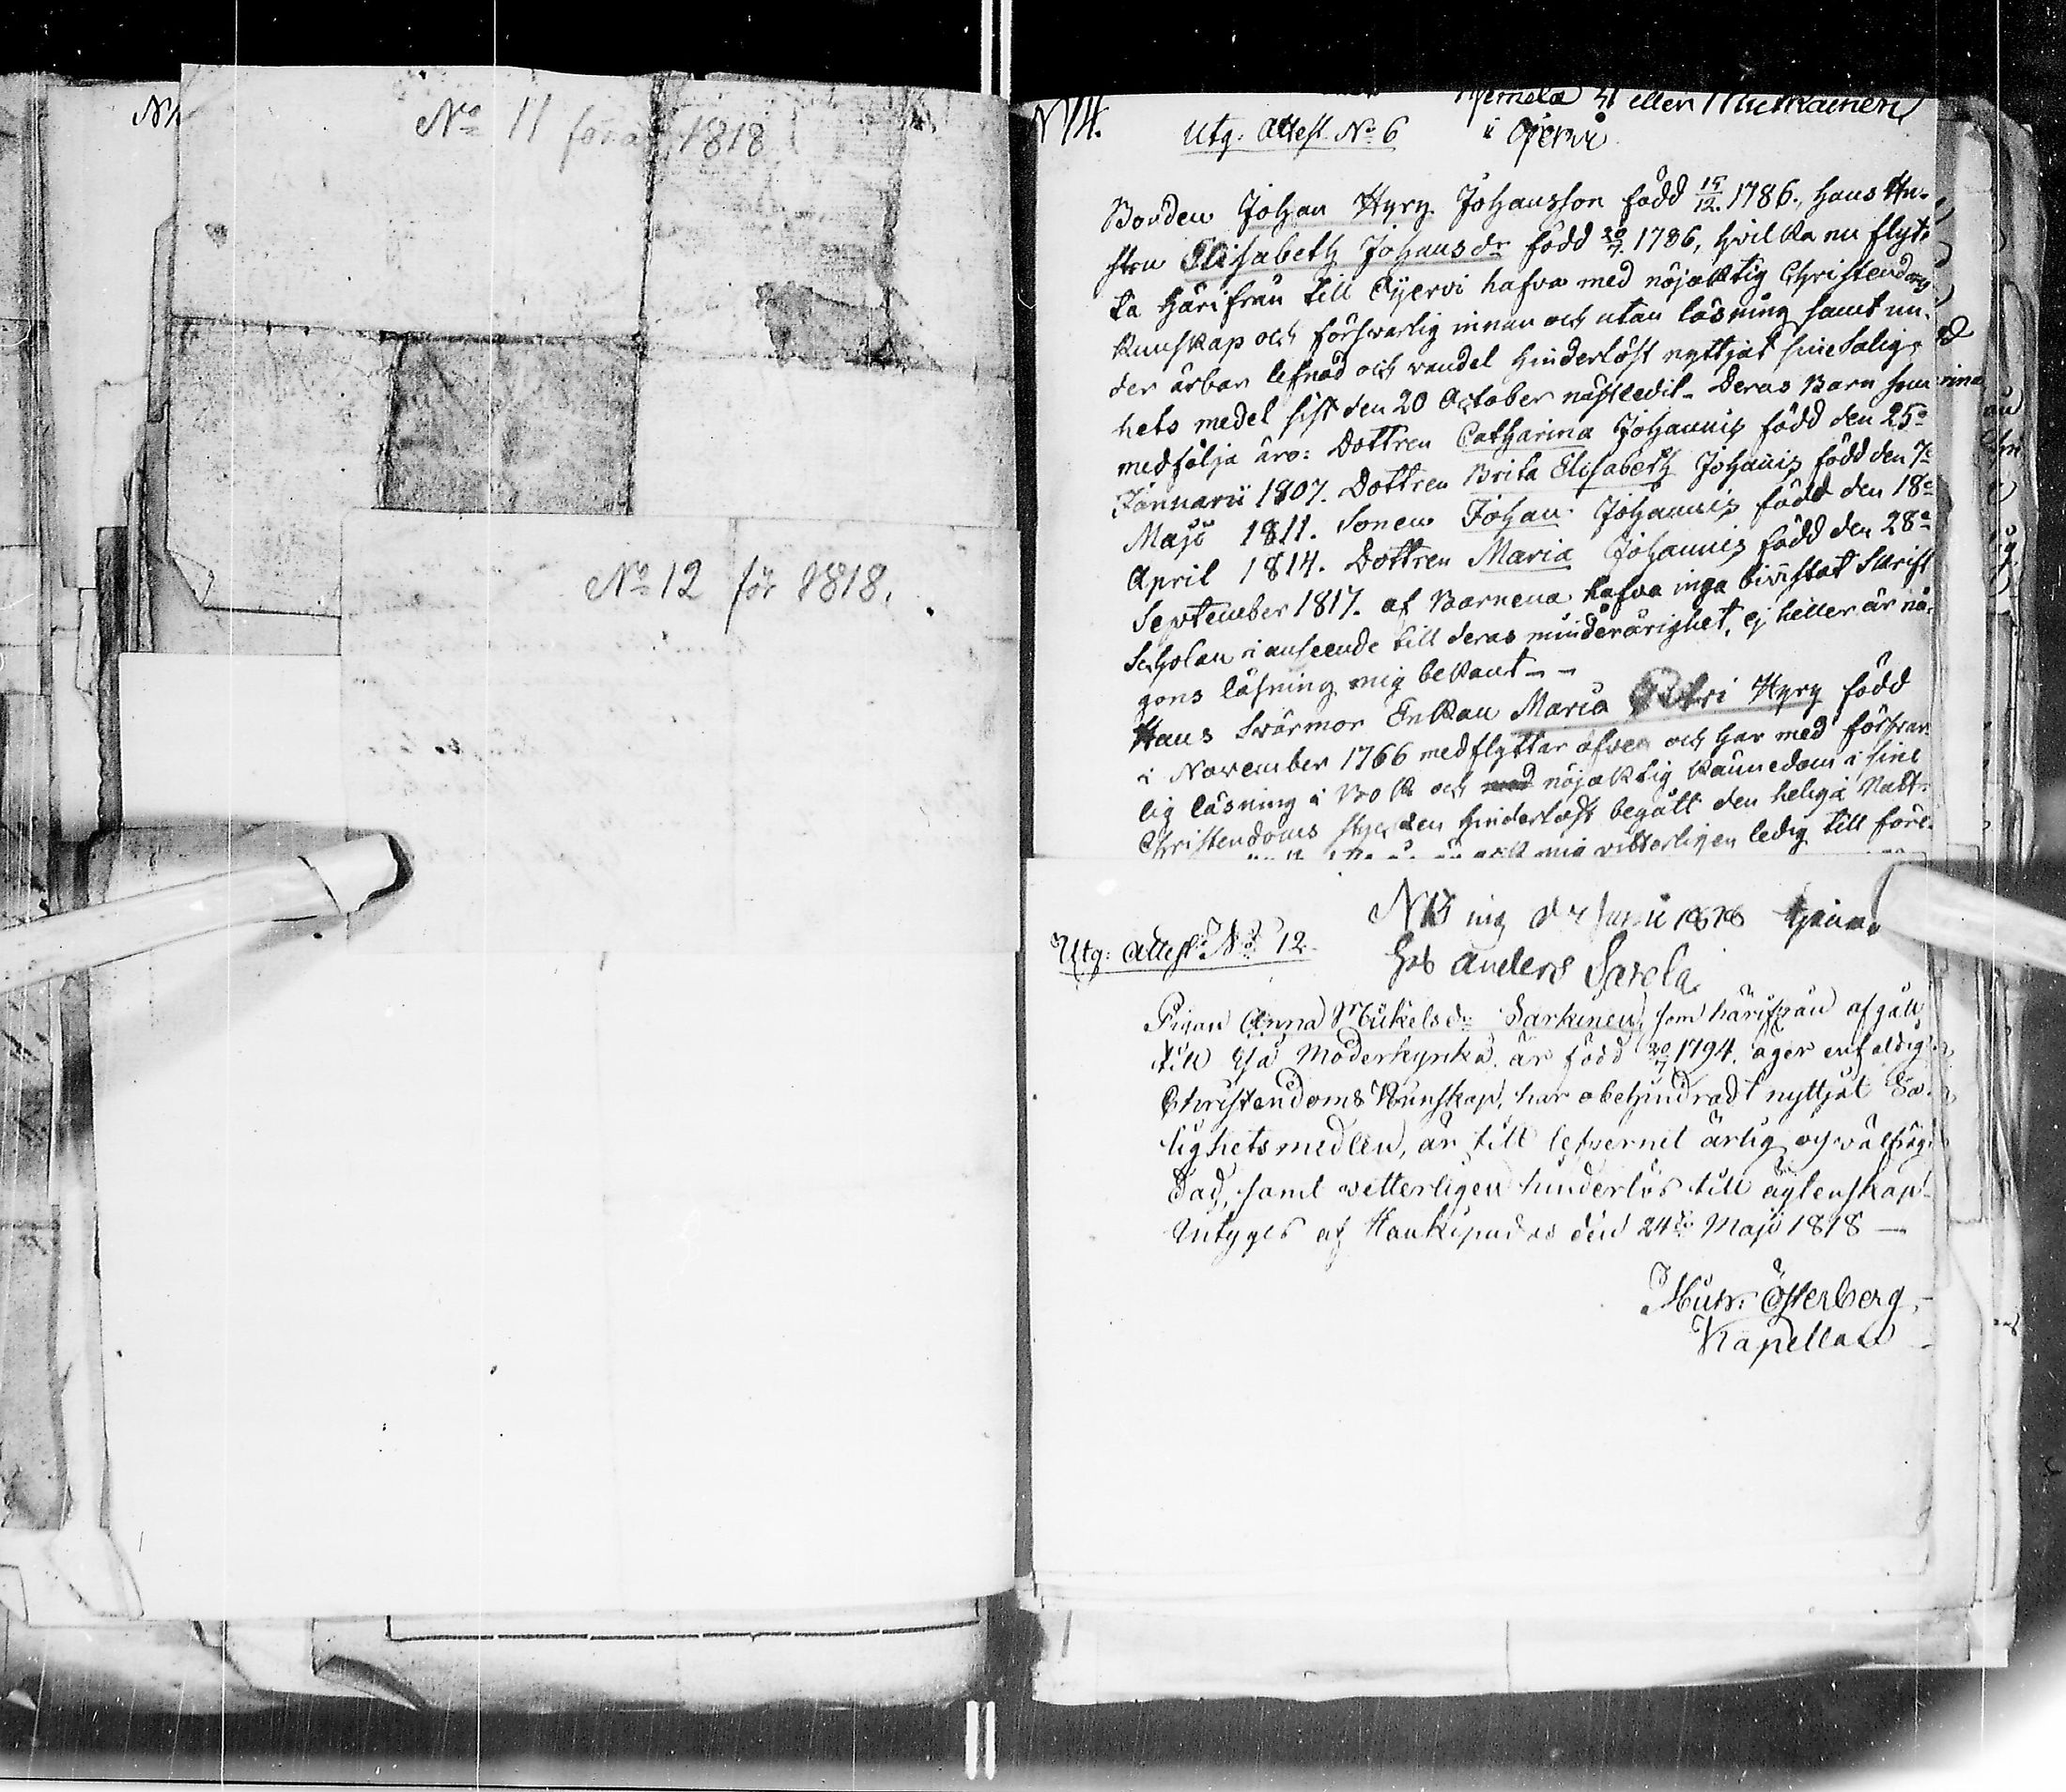 No 11 1818
No 12 för 1818.
N 14.
eller
Utg. Attest No 6
i Ojervi
Bonden Johan Hyry Johansson född 15/12. 1786., hans Hu-
stru Elisabeth Johansdr född 20/7. 1786, hvilka nu flyt-
ta härifrån till Oijervi hafva med nöjaktig Christendoms
kunskap och försvarlig innan och utan läsning samt un-
der ärbar lefnad och vandel hinderlöst nyttjat sine Salig-
hets medel sist den 20 October nästledit. Deras Barn som
medfölja äro: Dottren Catharina Johannis född den 25e
Januarii 1807. Dottren Brita Elisabeth Johannis född den 7e
Maji 1811. Sonen Johan Johannis född den 18e
April 1814. Dottren Maria Johannis född den 28e
September 1817. af Barnena hafva inga bivistat Skrift
Scholan i anseende till deras minderårighet, ej heller är nå-
gons läsning mig bekant - -
Hans Svärmor Enkan Maria Petri Hyry född
i November 1766 medflyttar äfven och har med försvar-
lig läsning i Bok och med nöjaktig kännedom i sine
Christendoms stycken hinderlöst begått den heliga Natt-
mig vitterligen ledig till före-
N 13 ing d 7 Junii 1818
Utg: Attest No 12
hos Anders
Pigan Anna Mickelsdr Sarkinen, som härifrån afgått
till Ijå Moderkyrka, är född 20/7 1794. äger enfaldig
Christendoms Kunskap, har obehindradt nyttjat Sa-
lighetsmedlen, är till lefvernet ärlig och välfräg-
dad, samt vitterligen hinderlös till ägtenskap.
Intygas af Haukipudas den 24de Maji 1818 —
Österberg
Kapellan